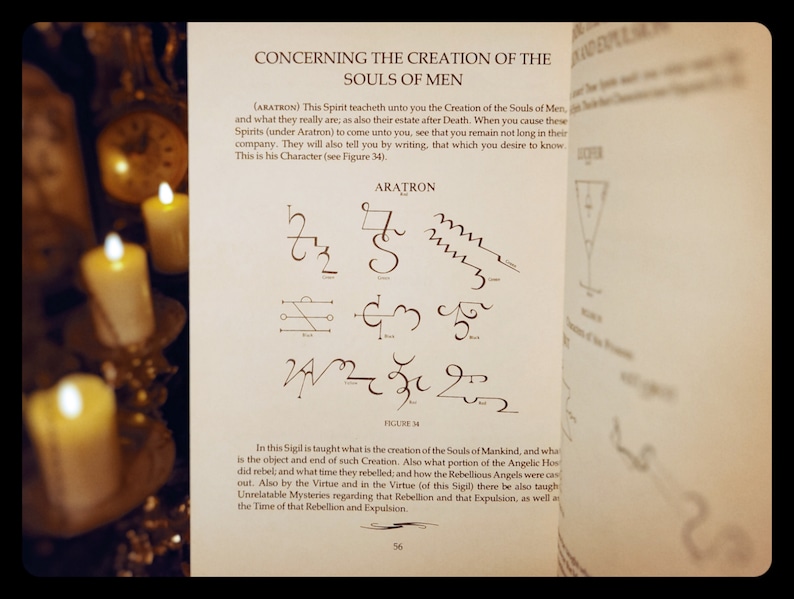 CONCERNING THE CREATION OF THE
SOULS OF MEN
(ARATRON) This Spirit teacheth unto you the Creation of the Souls of Men,
and what they really are; as also their estate after Death. When you cause these
Spirits (under Aratron) to come unto you, see that you remain not long in their
company. They will also tell you by writing, that which you desire to know.
This is his Character (see Figure 34).
ARATRON
Red
Green
Green
Green
Green
Black
Black
Black
Yellow
Red
Red
FIGURE 34
In this Sigil is taught what is the creation of the Souls of Mankind, and wha
is the object and end of such Creation. Also what portion of the Angelic Hos
did rebel; and what time they rebelled; and how the Rebellious Angels were cas
out. Also by the Virtue and in the Virtue (of this Sigil) there be also taugh
Unrelatable Mysteries regarding that Rebellion and that Expulsion, as well a
the Time of that Rebellion and Expulsion.
56
LUCIFER